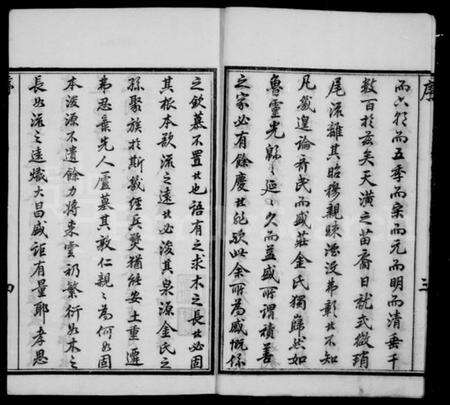 序
三
而六朝而五季而宋而元而明而清垂千
數百於茲矣天潢之苗裔日就式微瑣
尾流離其昭穆親疎湮沒弗彰者不知
凡幾遑論齊民而盛莊金氏獨巋然如
魯靈光緜緜延延久而益盛所謂積善
之家必有餘慶者非歟此余所為感慨係
之欽慕不置者也語有之求木之長者必固
其根本欲流之遠者必浚其泉源金氏之
孫聚族於斯幾經兵燹猶能安土重遷
弗忍棄先人廬墓其敦仁親親為何如固
本浚源不遺餘力將來雲礽繁衍如木之
長如流之遠熾大昌盛詎有量耶孝思